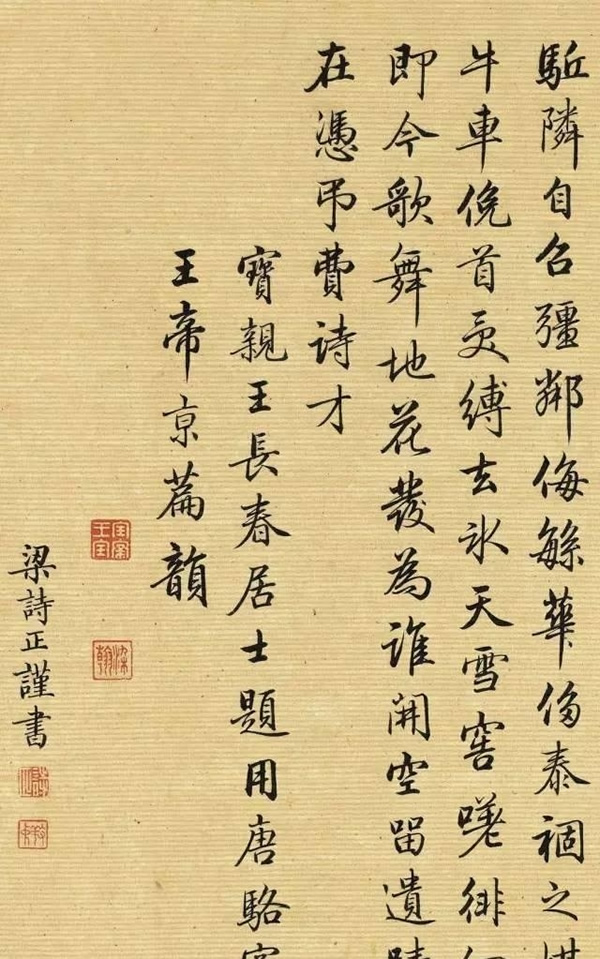 駈隣自召彊鄰侮緐華侈泰禍之媒
牛車俛首受縛去氷天雪窖嗟徘徊
即今歌舞地花發為誰開空留遺蹟
在憑吊費詩才
寶親王長春居士題用唐駱賓
王帝京篇韻
寶親王寶
染翰
梁詩正謹書